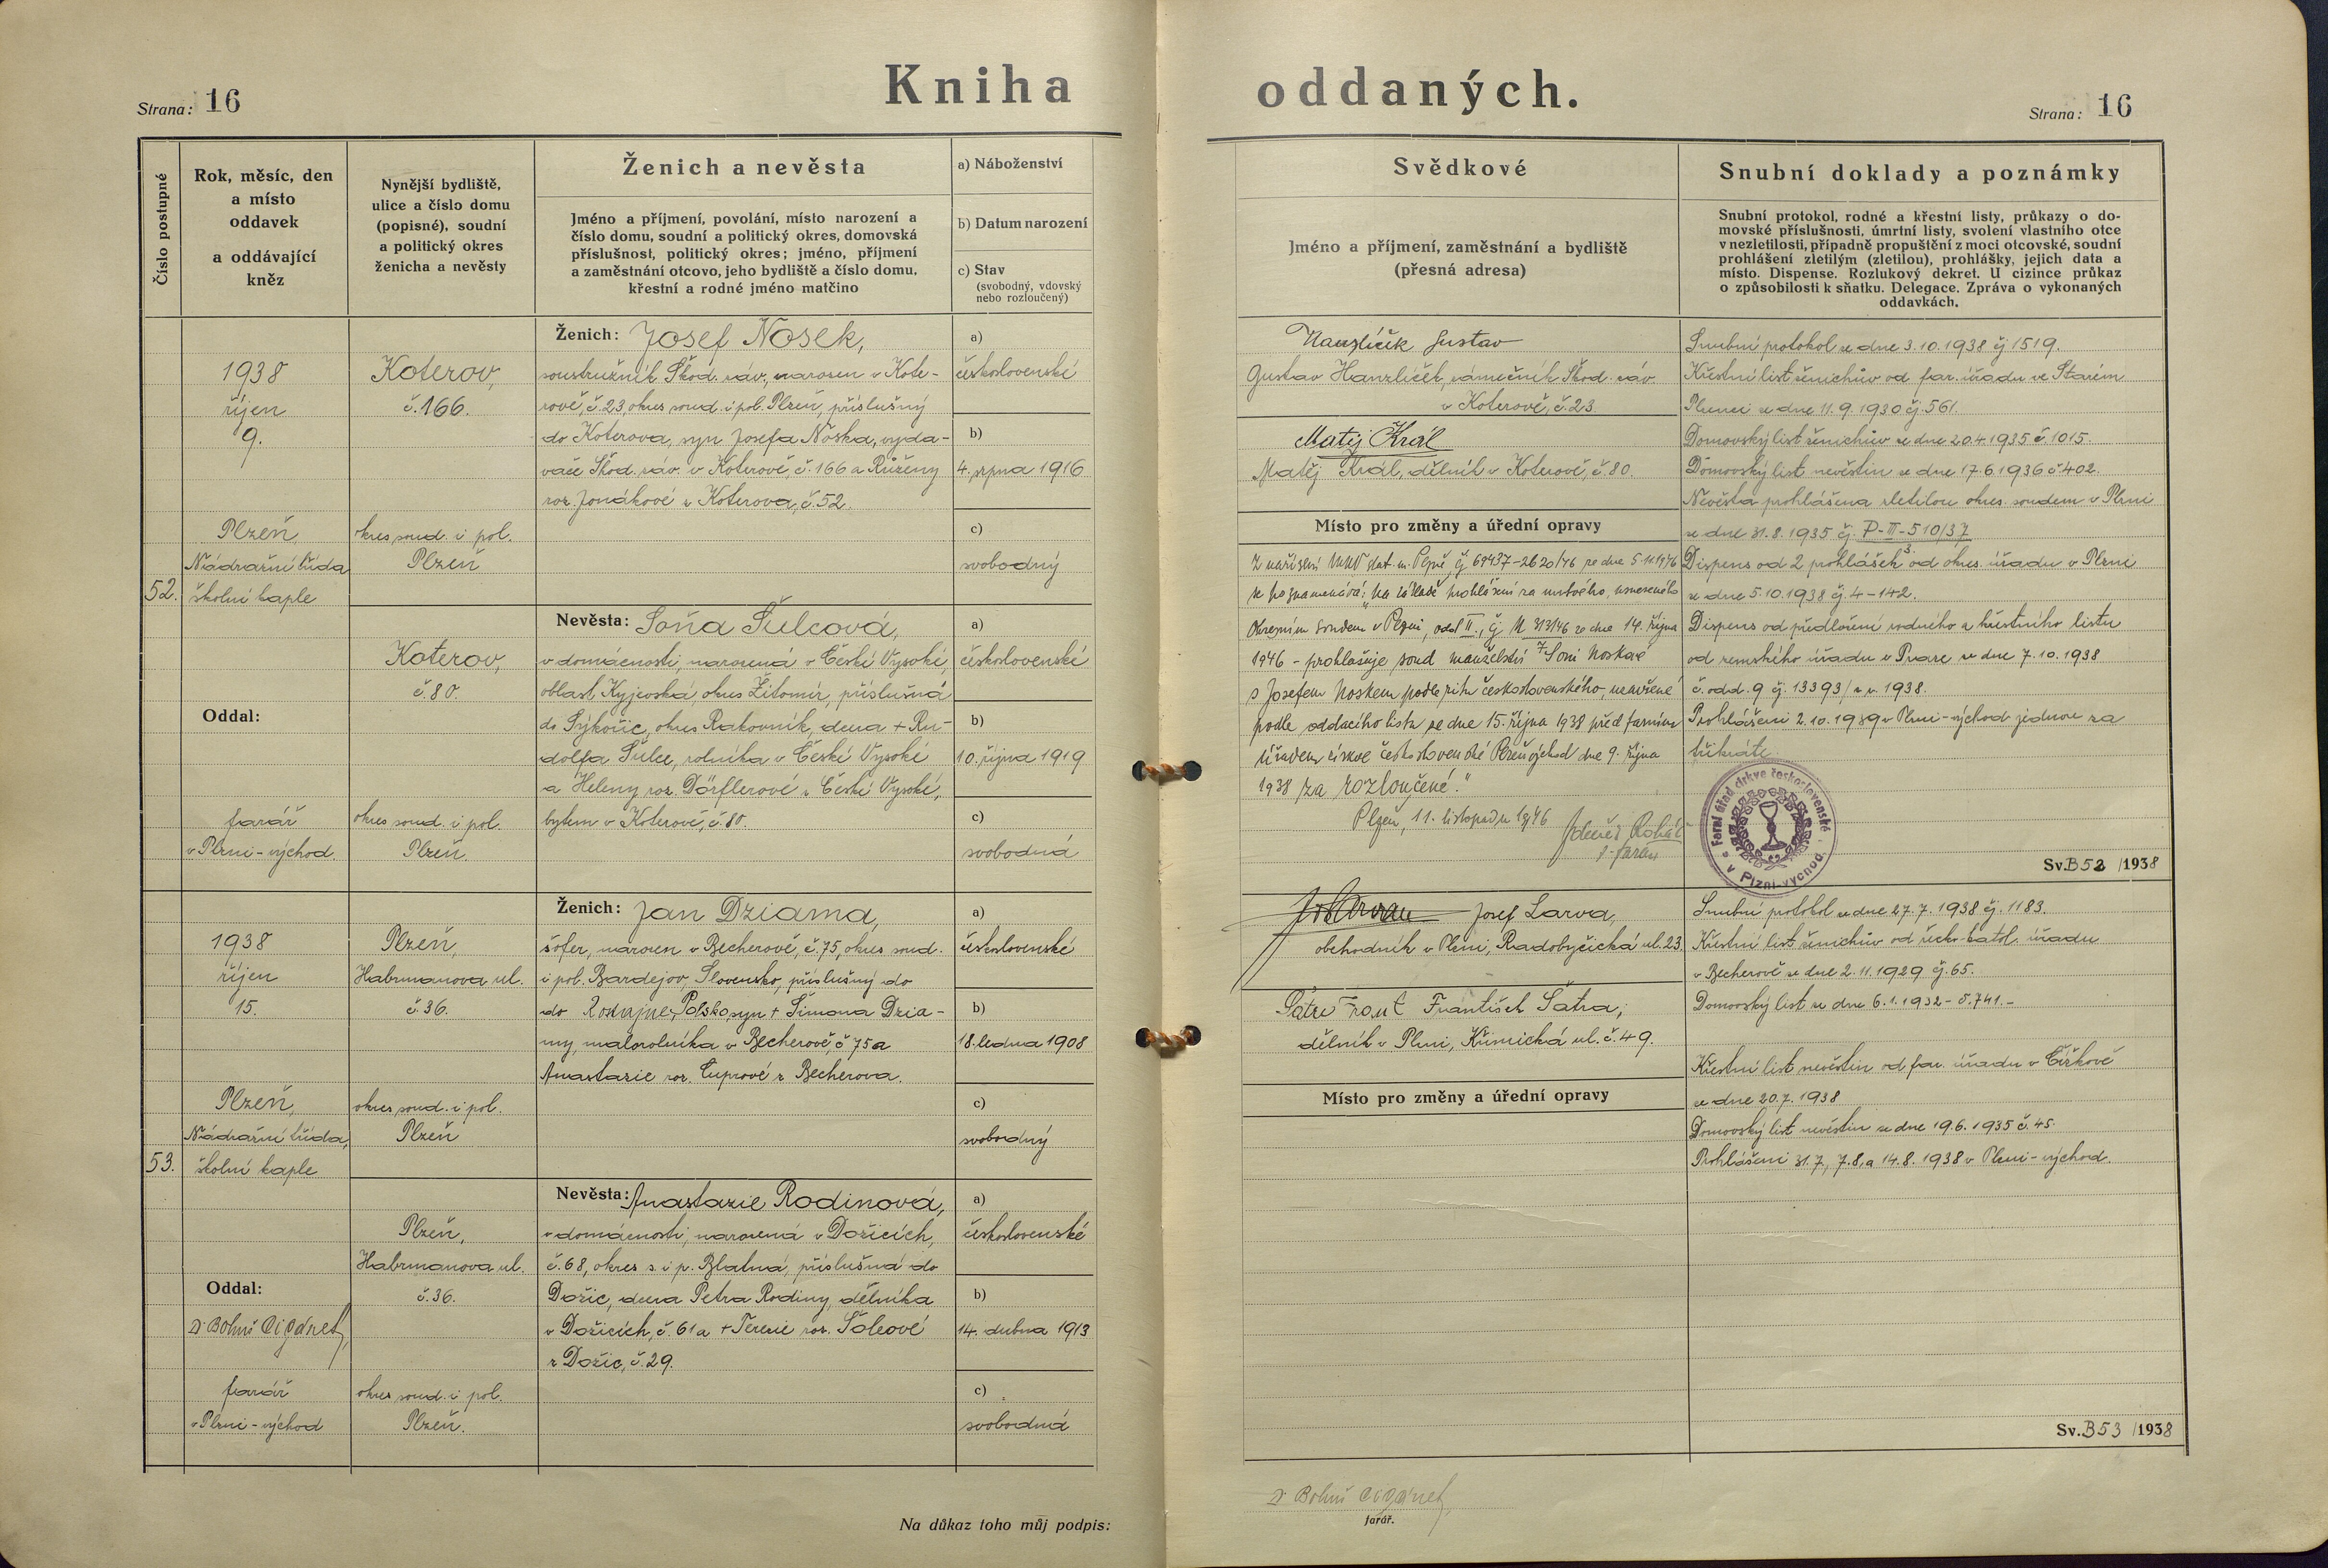 Strana: 16
Kniha oddaných.
Strana: 16
Číslo postupné
Rok, měsíc, den
a místo
oddavek
a oddávající
kněz
Nynější bydliště,
ulice a číslo domu
(popisné), soudní
a politický okres
ženicha a nevěsty
Ženich a nevěsta
Jméno a příjmení, povolání, místo narození a
číslo domu, soudní a politický okres, domovská
příslušnost, politický okres; jméno, příjmení
a zaměstnání otcovo, jeho bydliště a číslo domu,
křestní a rodné jméno matčino
a) Náboženství
b) Datum narození
c) Stav
(svobodný, vdovský
nebo rozloučený)
Svědkové
Jméno a příjmení, zaměstnání a bydliště
(přesná adresa)
Snubní doklady a poznámky
Snubní protokol, rodné a křestní listy, průkazy o do-
movské příslušnosti, úmrtní listy, svolení vlastního otce
v nezletilosti, případně propuštění z moci otcovské, soudní
prohlášení zletilým (zletilou), prohlášky, jejich data a
místo. Dispense. Rozlukový dekret. U cizince průkaz
o způsobilosti k sňatku. Delegace. Zpráva o vykonaných
oddavkách.
52.
1938
říjen
9.
Plzeň,
Nádražní třída
školní kaple
Oddal:
farář
v Plzni-východ.
Koterov,
č. 166.
okres soud. i pol.
Plzeň
Koterov,
č. 80.
okres soud. i pol.
Plzeň.
Ženich: Josef Nosek,
soustružník Škod. záv., narozen v Kote-
rově, č. 23, okres soud. i pol. Plzeň, příslušný
do Koterova, syn Josefa Noska, vyda-
vače Škod. záv. v Koterově, č. 166 a Růženy
roz. Jonákové z Koterova, č. 52.
a)
československé
b)
4. srpna 1916
c)
svobodný
Nevěsta: Soňa Šulcová,
v domácnosti, narozená v České Vysoké,
oblast Kyjevská, okres Žitomír, příslušná
do Sýkořic, okres Rakovník, dcera + Ru-
dolfa Šulce, rolníka v České Vysoké
a Heleny roz. Dörflerové z České Vysoké,
bytem v Koterově, č. 80.
a)
československé
b)
10. října 1919
c)
svobodná
Hanzlíček Gustav
Gustav Hanzlíček, zámečník Škod. záv.
v Koterově, č. 23.
Matěj Král
Matěj Král, dělník v Koterově, č. 80.
Místo pro změny a úřední opravy
Z nařízení č. 69437-2620/46 ze dne 5.11.1946
se poznamenává: "Na základě prohlášení za mrtvého, usneseného
Okresním soudem v Plzni, odd II., č. 313/46 ze dne 14. října
1946 - prohlašuje soud manželství Soni Noskové
s Josefem Noskem podle ritu československého, uzavřené
podle oddacího listu ze dne 15. října 1938 před farním
úřadem církve československé Plzeň východ dne 9. října
1938 za rozloučené."
Plzeň, 11. listopadu 1946
farář
Snubní protokol ze dne 3.10.1938 čj. 1519.
Křestní list ženichův od far. úřadu ve Starém
Plzenci ze dne 11.9.1930 čj. 561.
Domovský list ženichův ze dne 20.4.1935 č. 1015.
Domovský list nevěstin ze dne 17.6.1936 č. 402.
Nevěsta prohlášena zletilou okres. soudem v Plzni
ze dne 31.8.1935 čj. P-II-510/37
Dispens od 2. 3. prohlášek od okres. úřadu v Plzni
ze dne 5.10.1938 čj. 4-142.
Dispens od předložení rodného a křestního listu
od zemského úřadu v Praze ze dne 7.10.1938
č. odd. 9 čj. 13393/ z r. 1938.
Prohlášeni 2.10.1939 v Plzni-východ jednou za
třikráte.
Farní úřad církve československé v Plzni-východ.
Sv. B 52 /1938
53.
1938
říjen
15.
Plzeň,
Nádražní třída,
školní kaple
Oddal:
farář
v Plzni-východ
Plzeň,
Habrmanova ul.
č. 36.
okres soud. i pol.
Plzeň
Plzeň,
Habrmanova ul.
č. 36.
okres soud. i pol.
Plzeň.
Ženich: Jan Dziama,
šofer, narozen v Becherově, č. 75, okres soud.
i pol. Bardejov, Slovensko, příslušný do
do Polsko, syn + Šimona Dzia-
my, malorolníka v Becherově, č. 75 a
Anastazie roz. Cuprové z Becherova.
a)
československé
b)
18. ledna 1908
c)
svobodný
Nevěsta: Anastazie Rodinová,
v domácnosti, narozená v Dožicích,
č. 68, okres s. i p. Blatná, příslušná do
Dožic, dcera Petra Rodiny, dělníka
v Dožicích, č. 61 a + Terezie roz. Šolcové
z Dožic, č. 29.
a)
československé
b)
14. dubna 1913
c)
svobodná
Josef Larva,
obchodník v Plzni, Radobyčická ul. 23.
František Šatra,
dělník v Plzni, Křimická ul. č. 49.
Místo pro změny a úřední opravy
Snubní protokol ze dne 27.7.1938 čj. 1183.
Křestní list ženichův od řecko-katol. úřadu
v Becherově ze dne 2.11.1929 čj. 65.
Domovský list ze dne 6.1.1932 - č. 741.-
Křestní list nevěstin od far. úřadu v Čížkově
ze dne 20.7.1938
Domovský list nevěstin ze dne 19.6.1935 č. 45.
Prohlášeni 31.7., 7.8. a 14.8.1938 v Plzni-východ.
Sv. B 53 /1938
Na důkaz toho můj podpis:
farář.